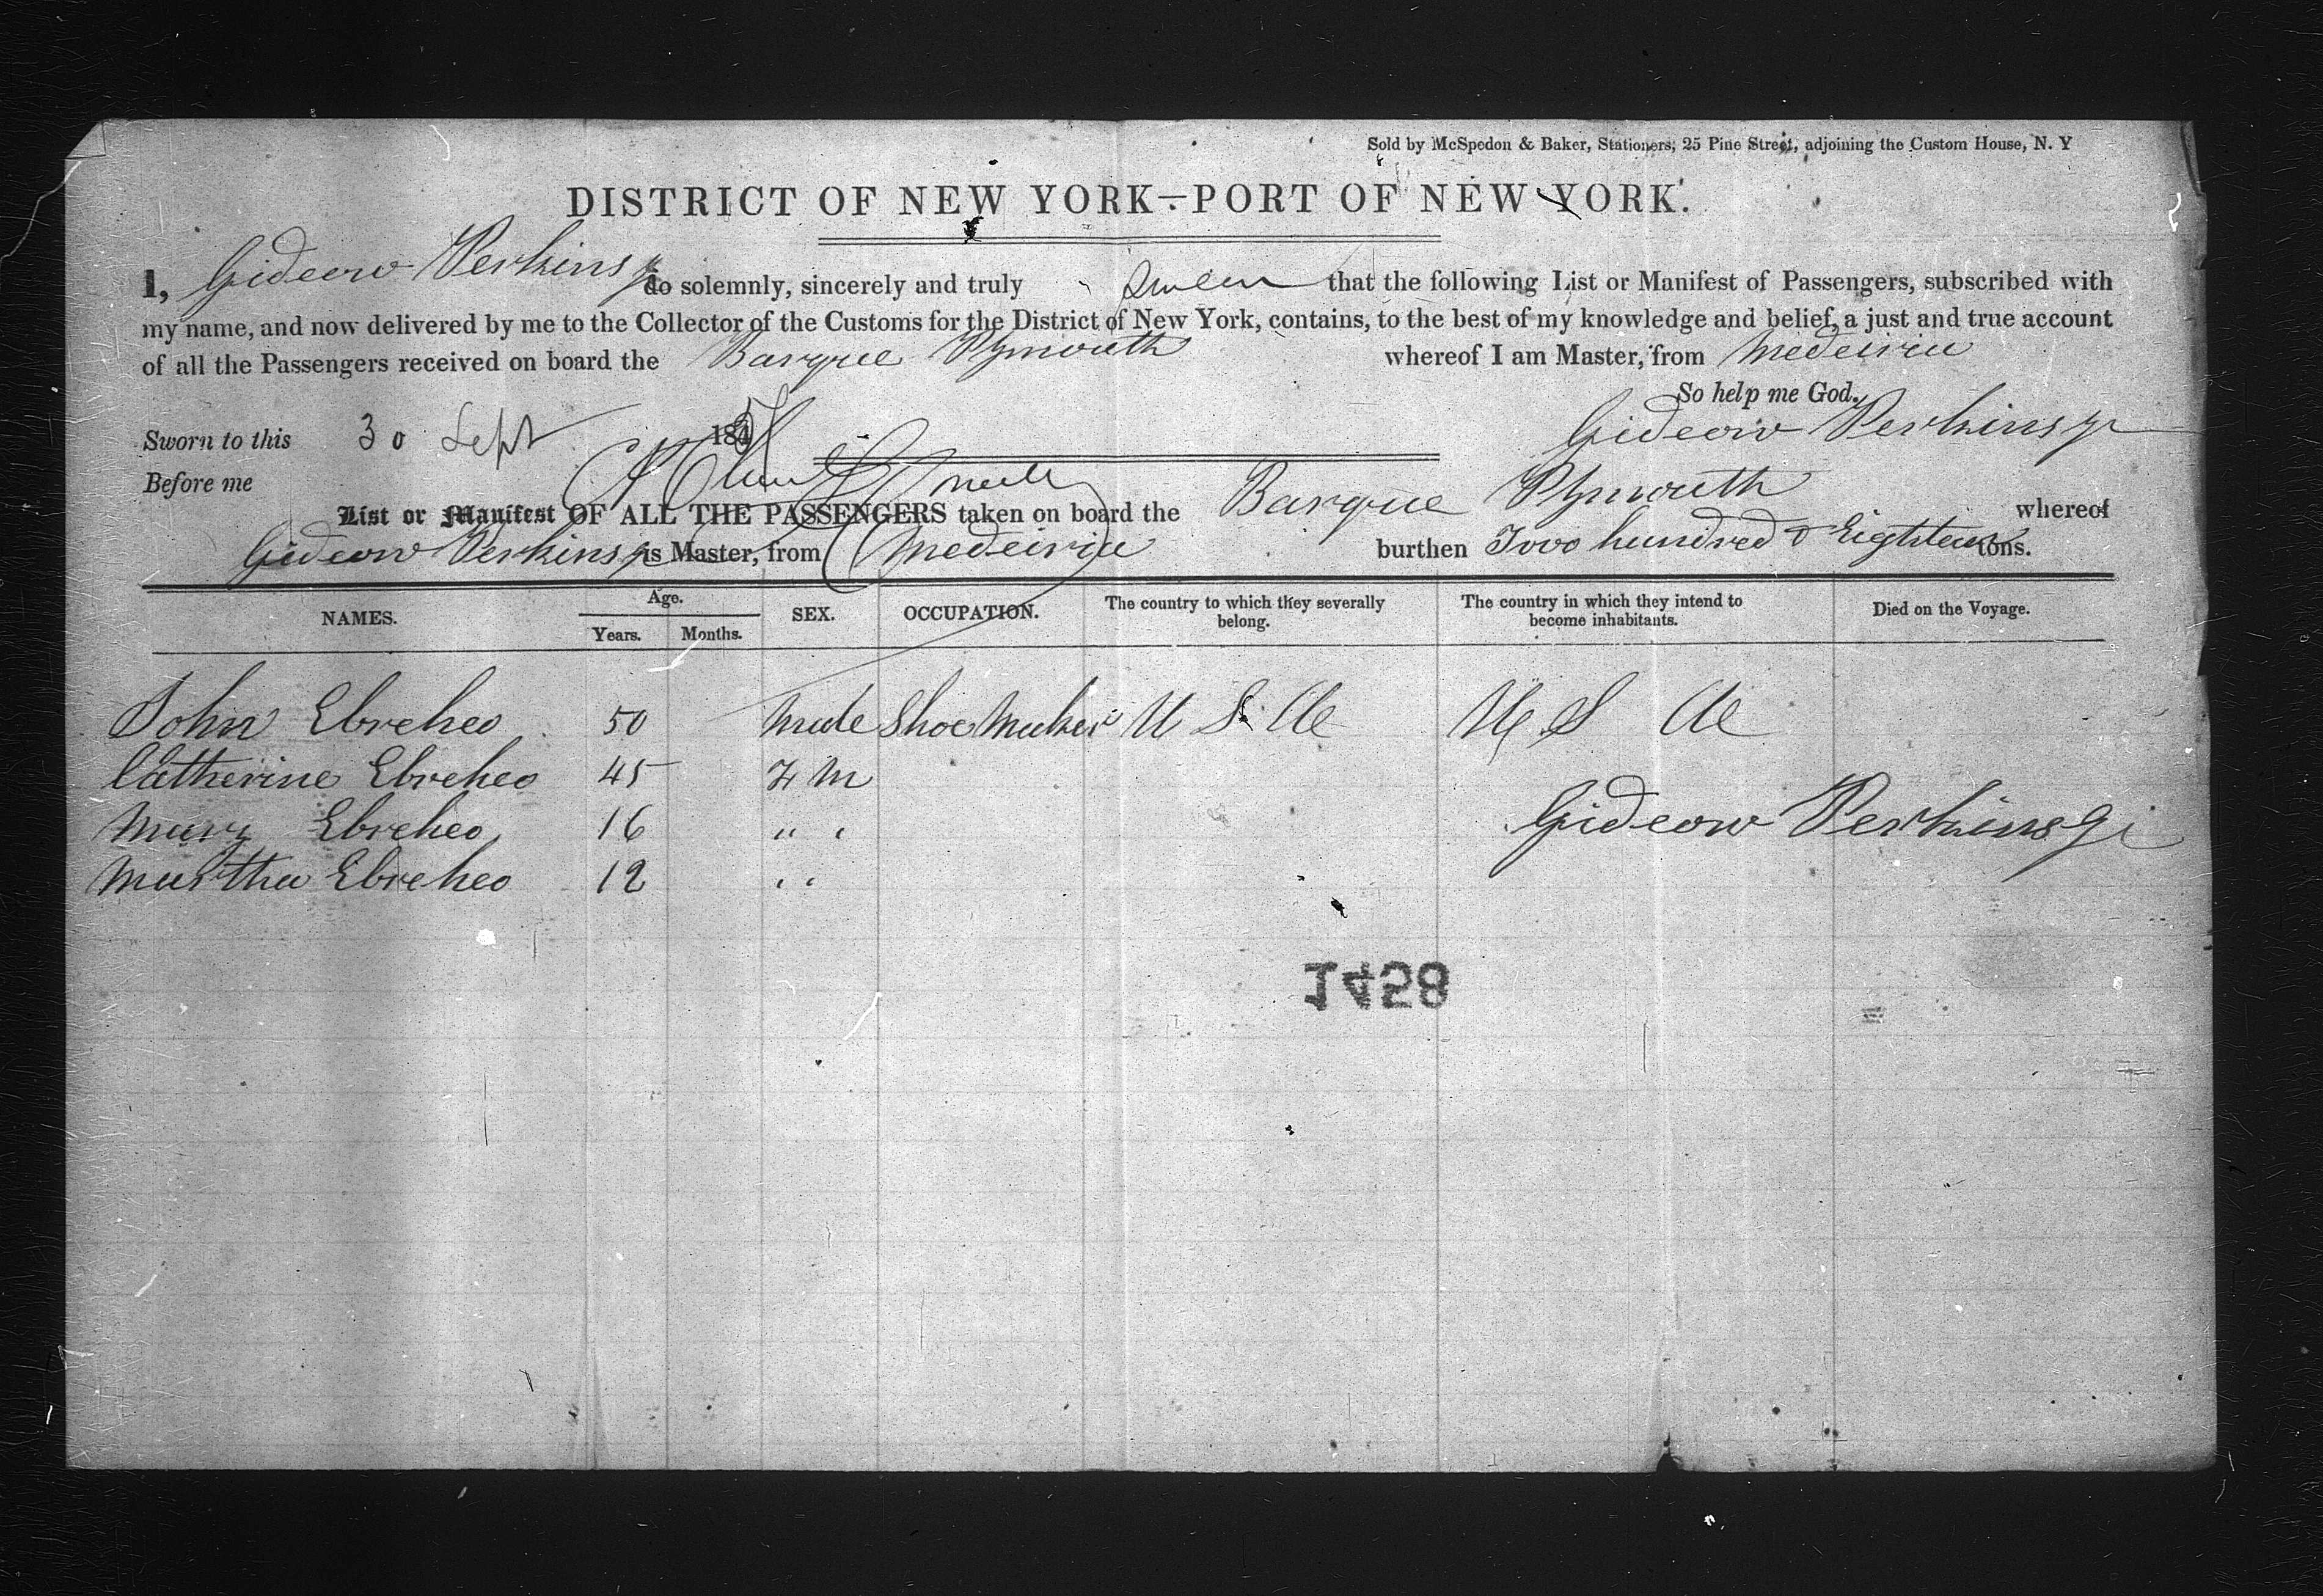 Sold by McSpedon & Baker, Stationers, 25 Pine Street, adjoining the Custom House, N. Y
DISTRICT OF NEW YORK—PORT OF NEW YORK.
I, Gideon Perkins jr do solemnly, sincerely and truly swear that the following List or Manifest of Passengers, subscribed with
my name, and now delivered by me to the Collector of the Customs for the District of New York, contains, to the best of my knowledge and belief, a just and true account
of all the Passengers received on board the Barque Plymouth whereof I am Master, from Medeiria
So help me God.
Sworn to this 30 Sept 184 Gideon Perkins jr
Before me
List or Manifest OF ALL THE PASSENGERS taken on board the Barque Plymouth whereof
Gideon Perkins jr is Master, from Medeiria burthen Two hundred & Eighteen tons.
NAMES. Age. Years. Months. SEX. OCCUPATION. The country to which they severally belong. The country in which they intend to become inhabitants. Died on the Voyage.
John Ebreheo 50 Male Shoe Maker U S A U S A
Catherine Ebreheo 45 F M
Mary Ebreheo 16 " "
Martha Ebreheo 12 " "
Gideon Perkins jr
1458